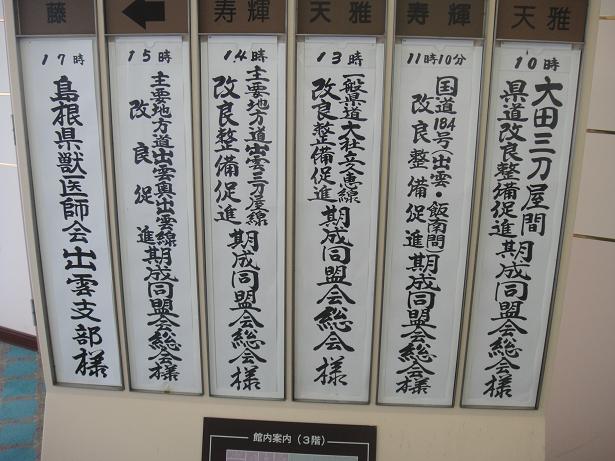 天雅
10時
大田三刀屋間
県道改良整備促進
期成同盟会総会様
寿輝
11時10分
国道184号(出雲・飯南間)
改良整備促進
期成同盟会総会様
天雅
13時
一般県道大社立久恵線
改良整備促進
期成同盟会総会様
寿輝
14時
主要地方道出雲三刀屋線
改良整備促進
期成同盟会総会様
←
15時
主要地方道出雲奥出雲線
改良促進
期成同盟会総会様
藤
17時
島根県獣医師会出雲支部様
館内案内(3階)